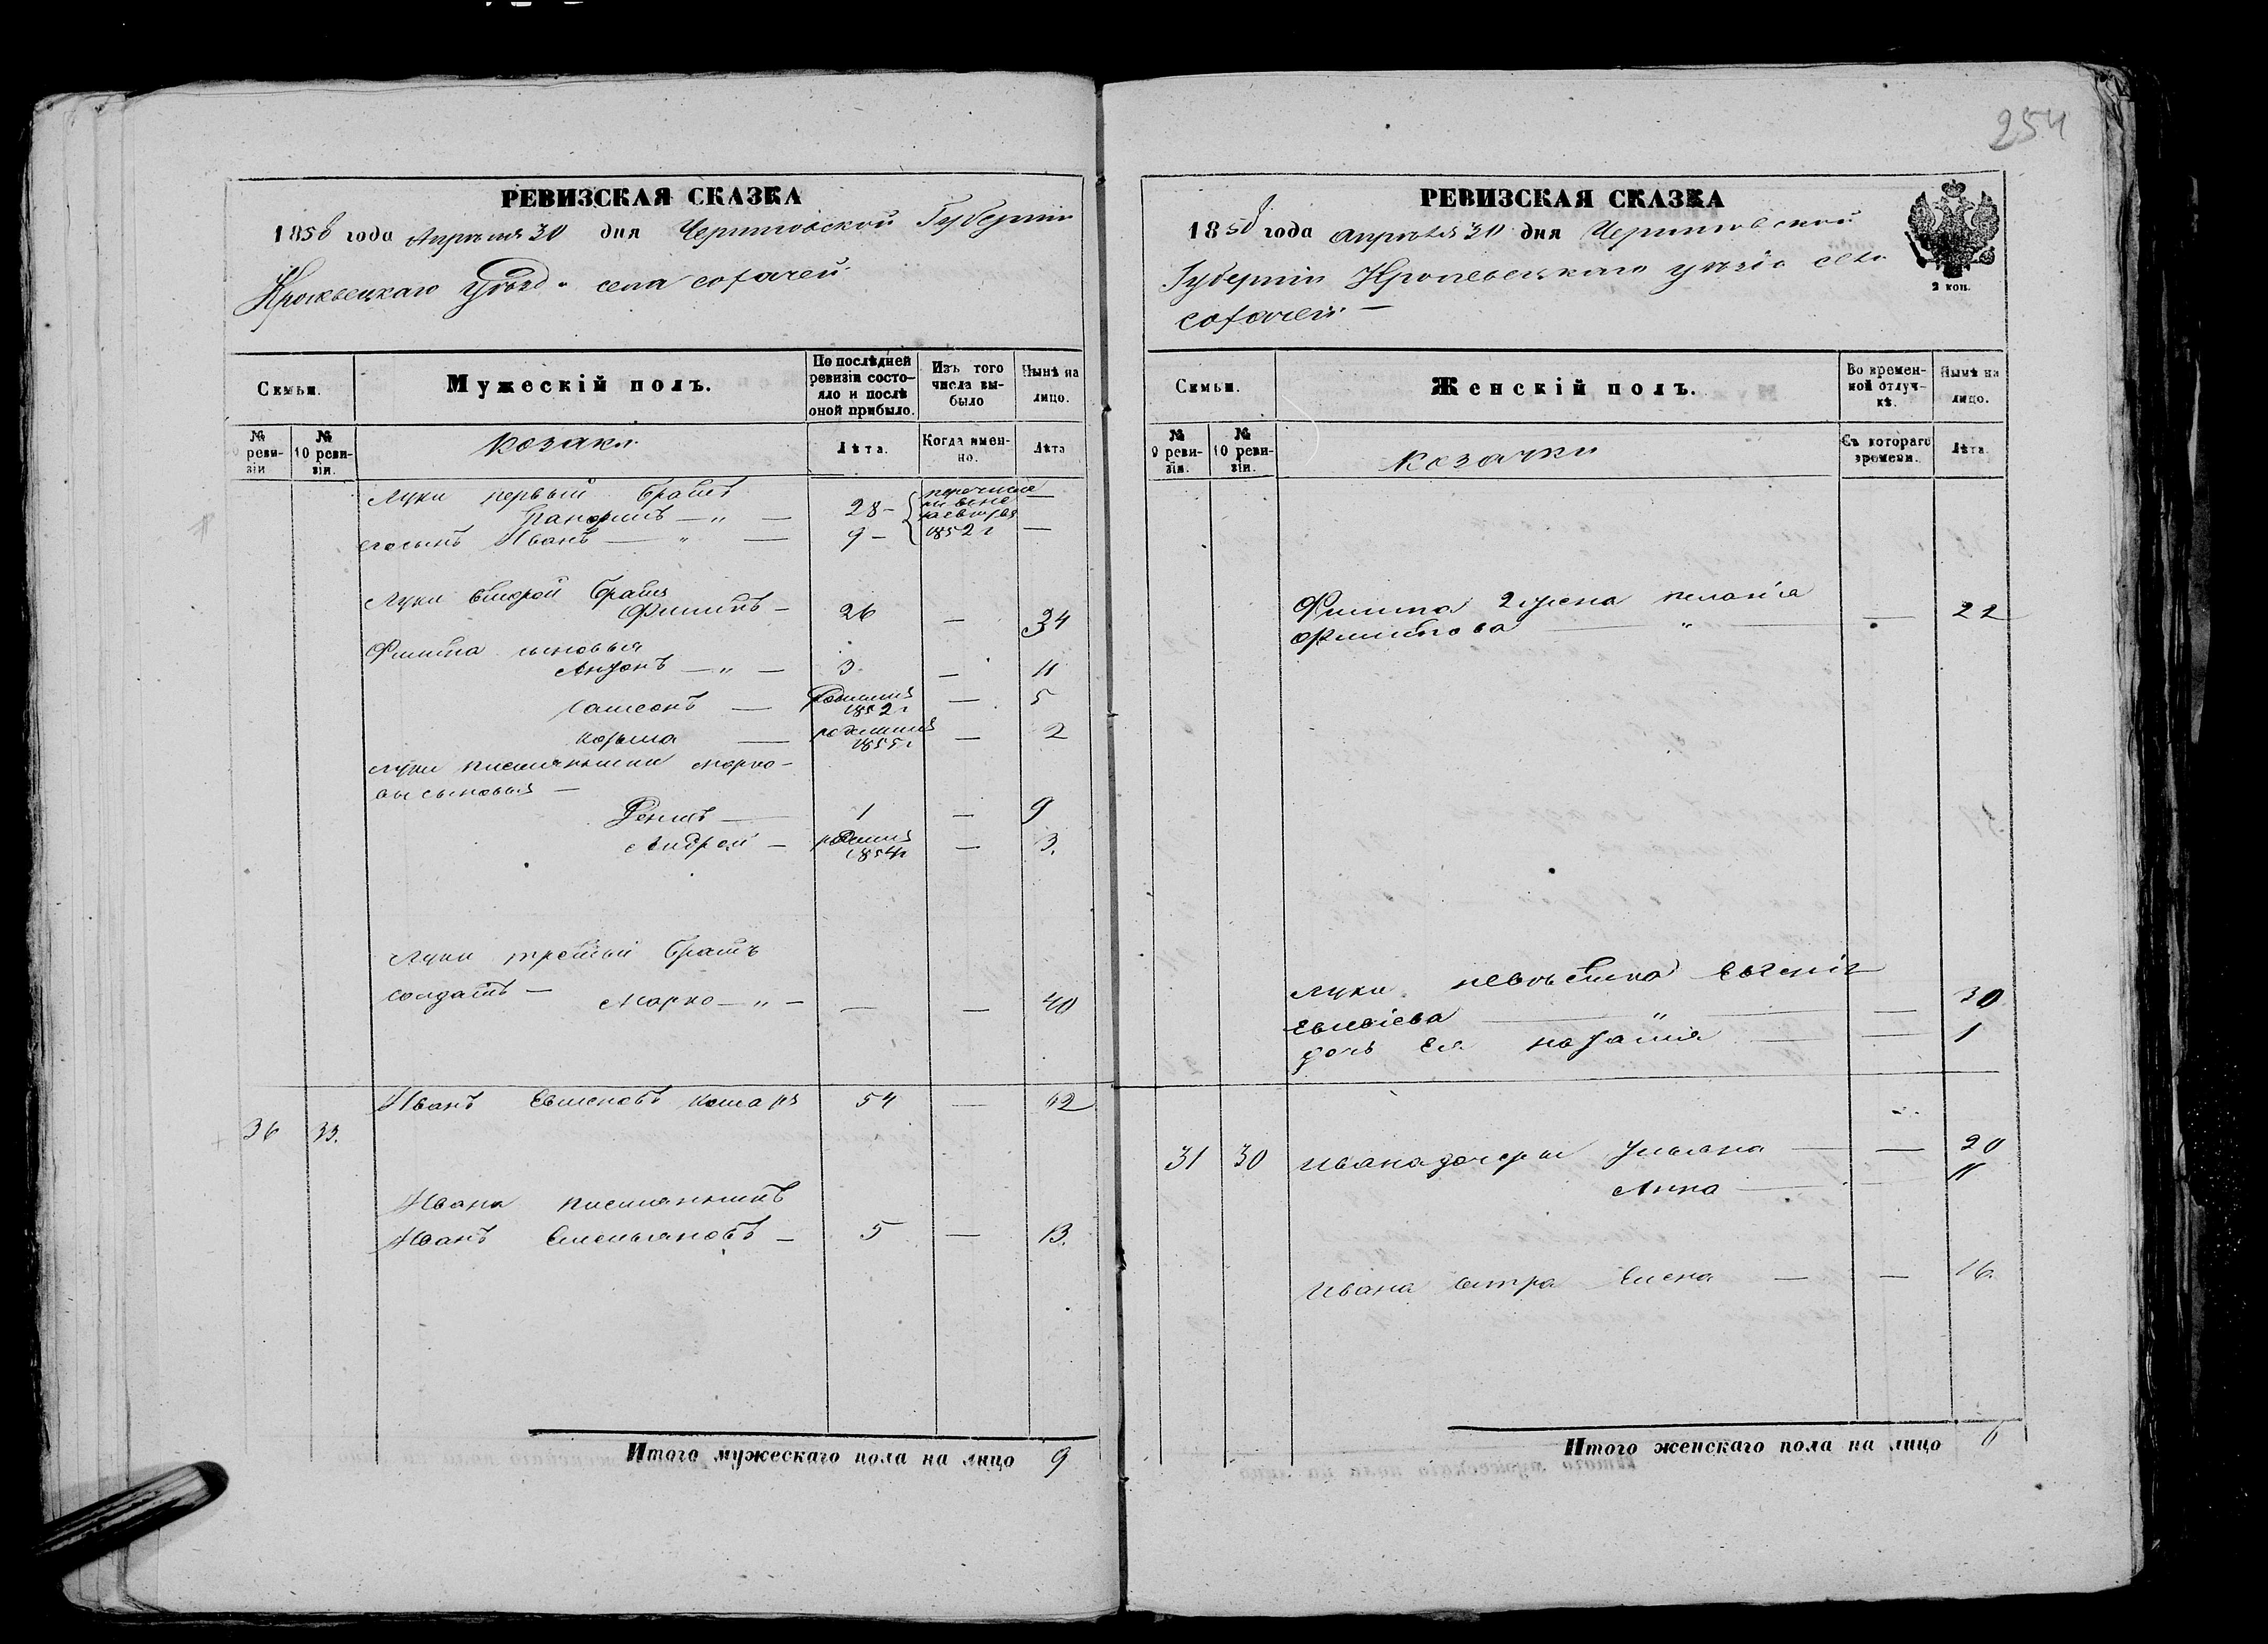 254
РЕВИЗСКАЯ СКАЗКА
1858 года Апреля 30 дня Черниговской Губернии
Кролевецкаго Уезда села
Семьи.
Мужескій полъ.
По послѣдней ревизіи состояло и послѣ оной прибыло.
Изъ того числа выбыло
Нынѣ на лицо.
№ ревизіи
№ 10 ревизіи.
козаки
Лѣта.
Когда именно.
Лѣта
Луки первый братъ
28 —
—
его сынъ Иванъ — " — 9 — 1852 г —
Луки второй братъ
Филипъ — 26 — 34
Филипа сыновья
Антонъ — " — 3 — 11
Самсонъ — родился 1852 г — 5
Козьма — родился 1855 г — 2
Луки племянники Марко-
вы сыновья —
Денисъ — 1 — 9
Андрей — родился 1854 г — 3.
Луки третий братъ
солдатъ — Марко — " — — — 40
Иванъ 54 — 62
36 33.
Ивана племянникъ
Иванъ Емельяновъ — 5 — 13.
Итого мужескаго пола на лицо 9
РЕВИЗСКАЯ СКАЗКА
1858 года апреля 30 дня Черниговской
Губернии Кролевецкаго уезда села
2 коп.
Семьи.
Женскій полъ.
Во временной отлучкѣ.
Нынѣ на лицо.
№ 9 ревизіи.
№ 10 ревизіи.
козачки
Съ котораго времени.
Лѣта.
Филипа 2 жена Меланія
Филипова — " — — 22
Луки невѣстка Евгенія
— " — — 30
дочь ея Наталия — — 1
31 30 Ивана дочери Ульяна — — 20
Анна — — 11
Ивана сестра Елена — — 16.
Итого женскаго пола на лицо 6